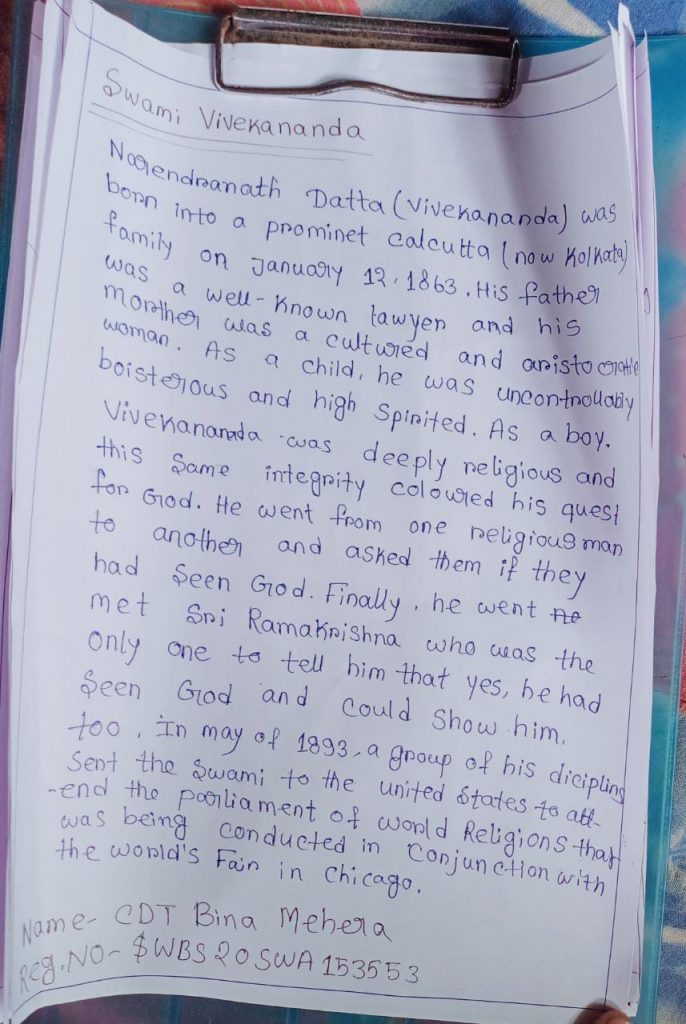 Swami Vivekananda
Narendranath Datta (Vivekananda) was
born into a prominet calcutta (now Kolkata)
family on January 12, 1863. His father
was a well-known lawyer and his
morther was a cultured and aristocratic
woman. As a child, he was uncontrollably
boisterous and high spirited. As a boy,
Vivekananada was deeply religious and
this same integrity coloured his quest
for God. He went from one religious man
to another and asked them if they
had seen God. Finally, he went
met Sri Ramakrishna who was the
only one to tell him that yes, he had
seen God and could show him,
too. In may of 1893, a group of his diciplins
sent the Swami to the united states to att-
-end the parliament of world Religions that
was being conducted in conjunction with
the world's Fair in Chicago.
Name- CDT Bina Mehera
Reg.NO- $WBS20SWA153553